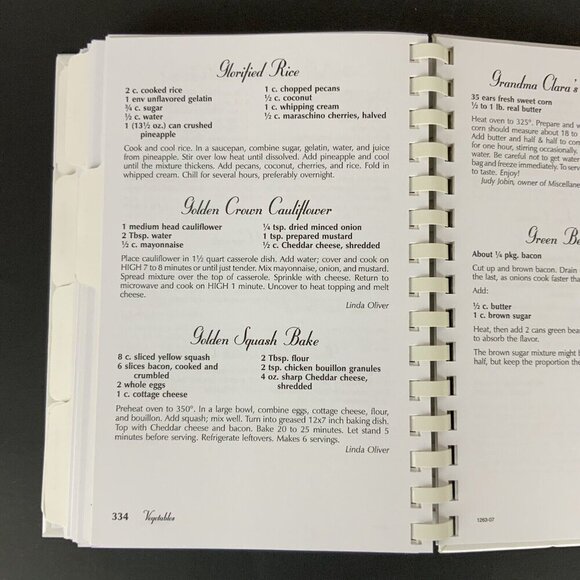 Glorified Rice
2 c. cooked rice
1 env unflavored gelatin
¾ c. sugar
½ c. water
1 (13½ oz.) can crushed
pineapple
1 c. chopped pecans
½ c. coconut
1 c. whipping cream
½ c. maraschino cherries, halved
Cook and cool rice. In a saucepan, combine sugar, gelatin, water, and juice
from pineapple. Stir over low heat until dissolved. Add pineapple and cool
until the mixture thickens. Add pecans, coconut, cherries, and rice. Fold in
whipped cream. Chill for several hours, preferably overnight.
Golden Crown Cauliflower
1 medium head cauliflower
2 Tbsp. water
½ c. mayonnaise
¼ tsp. dried minced onion
1 tsp. prepared mustard
½ c. Cheddar cheese, shredded
Place cauliflower in 1½ quart casserole dish. Add water; cover and cook on
HIGH 7 to 8 minutes or until just tender. Mix mayonnaise, onion, and mustard.
Spread mixture over the top of casserole. Sprinkle with cheese. Return to
microwave and cook on HIGH 1 minute. Uncover to heat topping and melt
cheese.
Linda Oliver
Golden Squash Bake
8 c. sliced yellow squash
6 slices bacon, cooked and
crumbled
2 whole eggs
1 c. cottage cheese
2 Tbsp. flour
2 tsp. chicken bouillon granules
4 oz. sharp Cheddar cheese,
shredded
Preheat oven to 350°. In a large bowl, combine eggs, cottage cheese, flour,
and bouillon. Add squash; mix well. Turn into greased 12x7 inch baking dish.
Top with Cheddar cheese and bacon. Bake 20 to 25 minutes. Let stand 5
minutes before serving. Refrigerate leftovers. Makes 6 servings.
Linda Oliver
334 Vegetables
Grandma Clara's
35 ears fresh sweet corn
½ to 1 lb. real butter
Heat oven to 325°. Prepare and
corn should measure about 18 to
Add butter and half & half to com
for one hour, stirring occasionally.
water. Be careful not to get water
bag and freeze immediately. To serv
to taste. Enjoy!
Judy Jobin, owner of Miscellane
Green Be
About ¼ pkg. bacon
Cut up and brown bacon. Drain
the last, as onions cook faster tha
Add:
½ c. butter
1 c. brown sugar
Heat, then add 2 cans green bea
to absorb the flavor.
The brown sugar mixture might
half, but keep the proportion the
1263-07